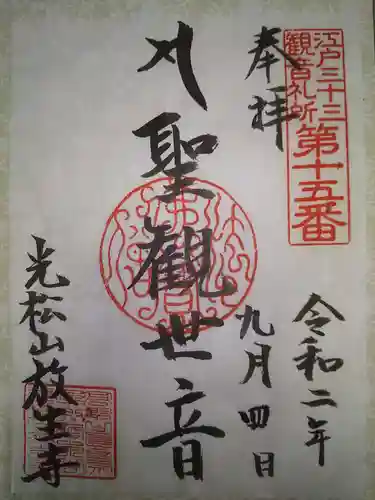 江戸三十三
観音札所
第十五番
奉拝
令和二年
九月四日
聖観世音
光松山放生寺